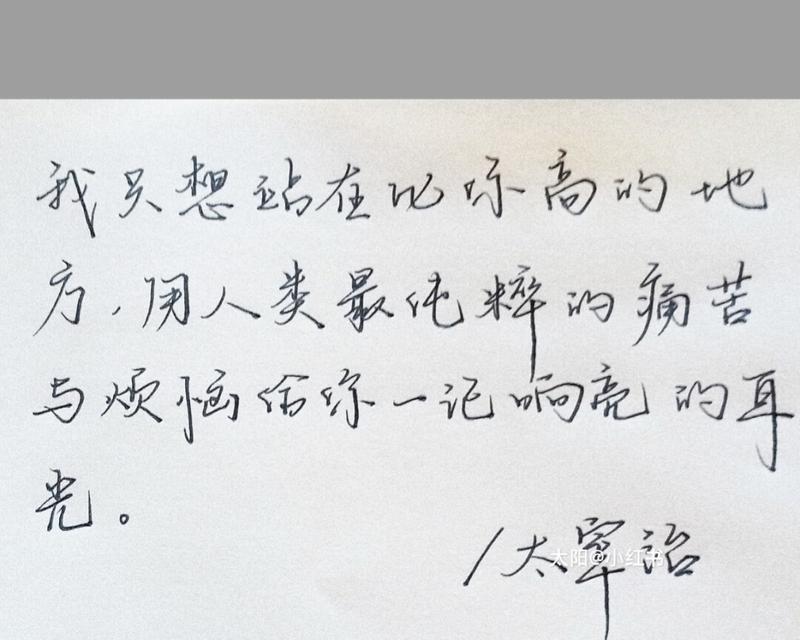 我只想站在比你高的地
方,用人类最纯粹的痛苦
与烦恼给你一记响亮的耳
光。
/太宰治
太阳@小红书